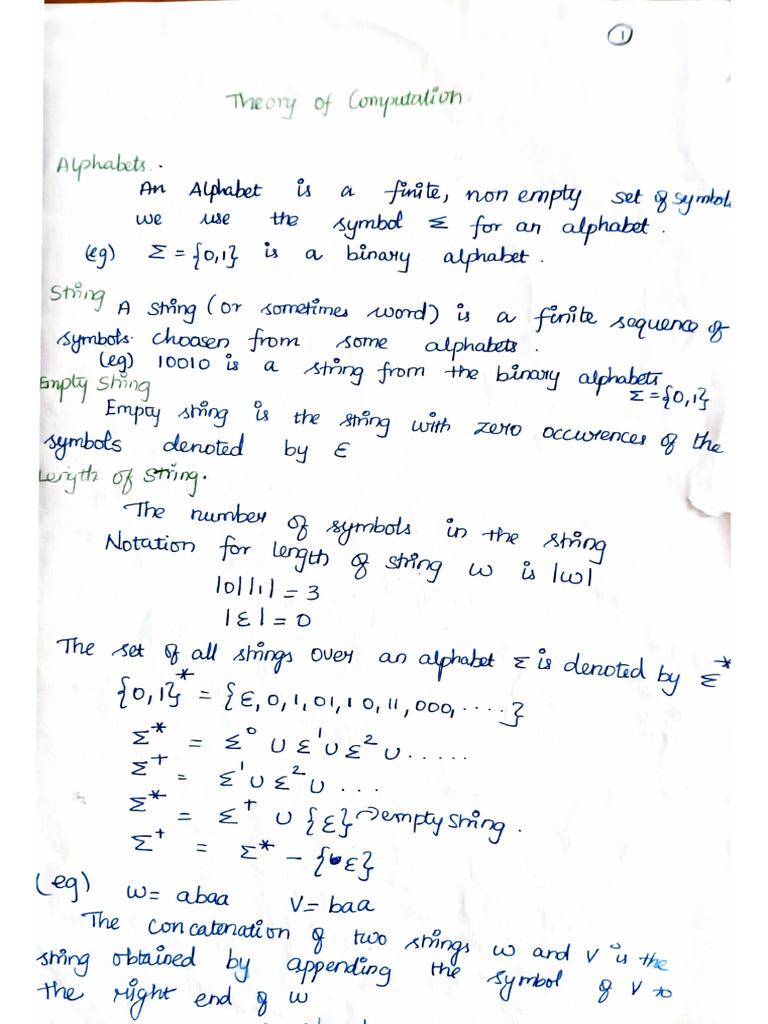 1
Theory of Computation
Alphabets.
An Alphabet is a finite, non empty set of symbol
we use the symbol Σ for an alphabet.
(eg) Σ = {0,1} is a binary alphabet.
String
A string (or sometimes word) is a finite sequence of
symbols choosen from some alphabets.
(eg) 10010 is a string from the binary alphabets
Σ = {0,1}
Empty String
Empty string is the string with zero occurences of the
symbols denoted by ε
Length of string.
The number of symbols in the string
Notation for length of string w is |w|
= 3
|ε| = 0
The set of all strings over an alphabet Σ is denoted by Σ*
{0,1}* = {ε, 0, 1, 01, 10, 11, 000, ....}
Σ* = Σ⁰ ∪ Σ¹ ∪ Σ² ∪ ......
Σ⁺ = Σ¹ ∪ Σ² ∪ ...
Σ* = Σ⁺ ∪ {ε} → empty string.
Σ⁺ = Σ* - {ε}
(eg) w = abaa V = baa
The concatenation of two strings w and V is the
string obtained by appending the symbol of V to
the right end of w